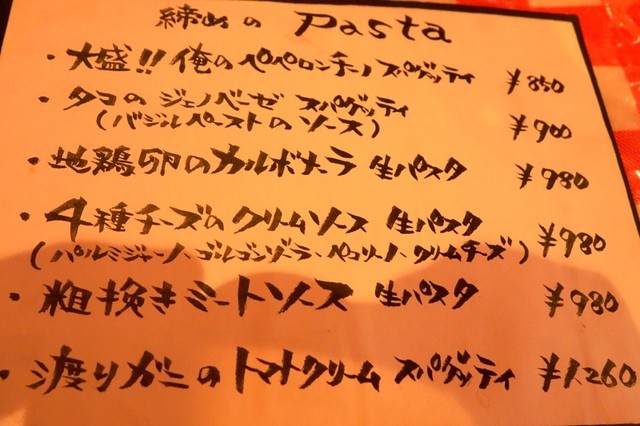 締めの Pasta
・大盛!! 俺のペペロンチーノ スパゲッティ ¥850
・タコの ジェノベーゼ スパゲッティ
(バジルペーストの ソース) ¥900
・地鶏卵のカルボナーラ 生パスタ ¥980
・4種チーズのクリームソース 生パスタ ¥980
(パルミジャーノ、ゴルゴンゾーラ、ペコリーノ、クリームチーズ)
・粗挽きミートソース 生パスタ ¥980
・渡りガニの トマトクリーム スパゲッティ ¥1,260